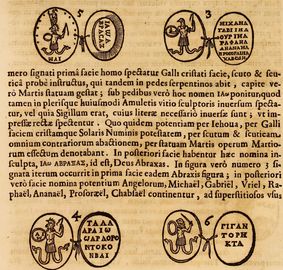 5
ΝΑΙ
ΙΑ
ΙΑωΑ
ΒΡΑΞΑΣ
3
ΜΙΧΑΗΛ
ΓΑΒΙΝΑ
ΟΥΡΙΗΛ
ΡΑΦΑΗΛ
ΑΝΑΝΑΗΛ
ΠΡΟΣΟΡΑΙΗΛ
ΧΑΒΣΟΝ
mero signati primâ facie homo spectatur Galli cristati facie, scuto & scu-
ticâ probè instructus, qui tandem in pedes serpentinos abit, capite ve-
rò Martis statuam gestat; sub pedibus verò hoc nomen ΙΑω ponitur; quod
tamen in plerisque huiusmodi Amuletis vitio sculptoris inuersum specta-
tur, vel quia Sigillum erat, cuius literæ necessariò inuersæ sunt, vt im-
pressæ rectæ spectentur. Quo quidem potentiam per Iehoua, per Galli
faciem cristamque Solaris Numinis potestatem, per scutum & scuticam
omnium contrariorum abactionem, per statuam Martis operum Martio-
rum effectum denotabant. In posteriori facie habentur hæc nomina in-
sculpta, ΙΑω ΑΒΡΑΞΑΣ, id est, Deus Abraxas. In figura verò numero 3 si-
gnata iterum occurrit in prima facie eadem Abraxis figura; in posteriori
verò facie nomina potentium Angelorum, Michaël, Gabriël, Vriel, Ra-
phaël, Ananaël, Prosoraël, Chabsaël continentur, ad superstitiosos vsus
4
ΤΑΛΑ
ΑΡΑΙω
ΨΑΡΔΟΡ
ΝΤΟΚΟ
ΝΒΑΙ
6
ΓΙΓΑΝ
ΤΟΡΗ
ΚΤΑ